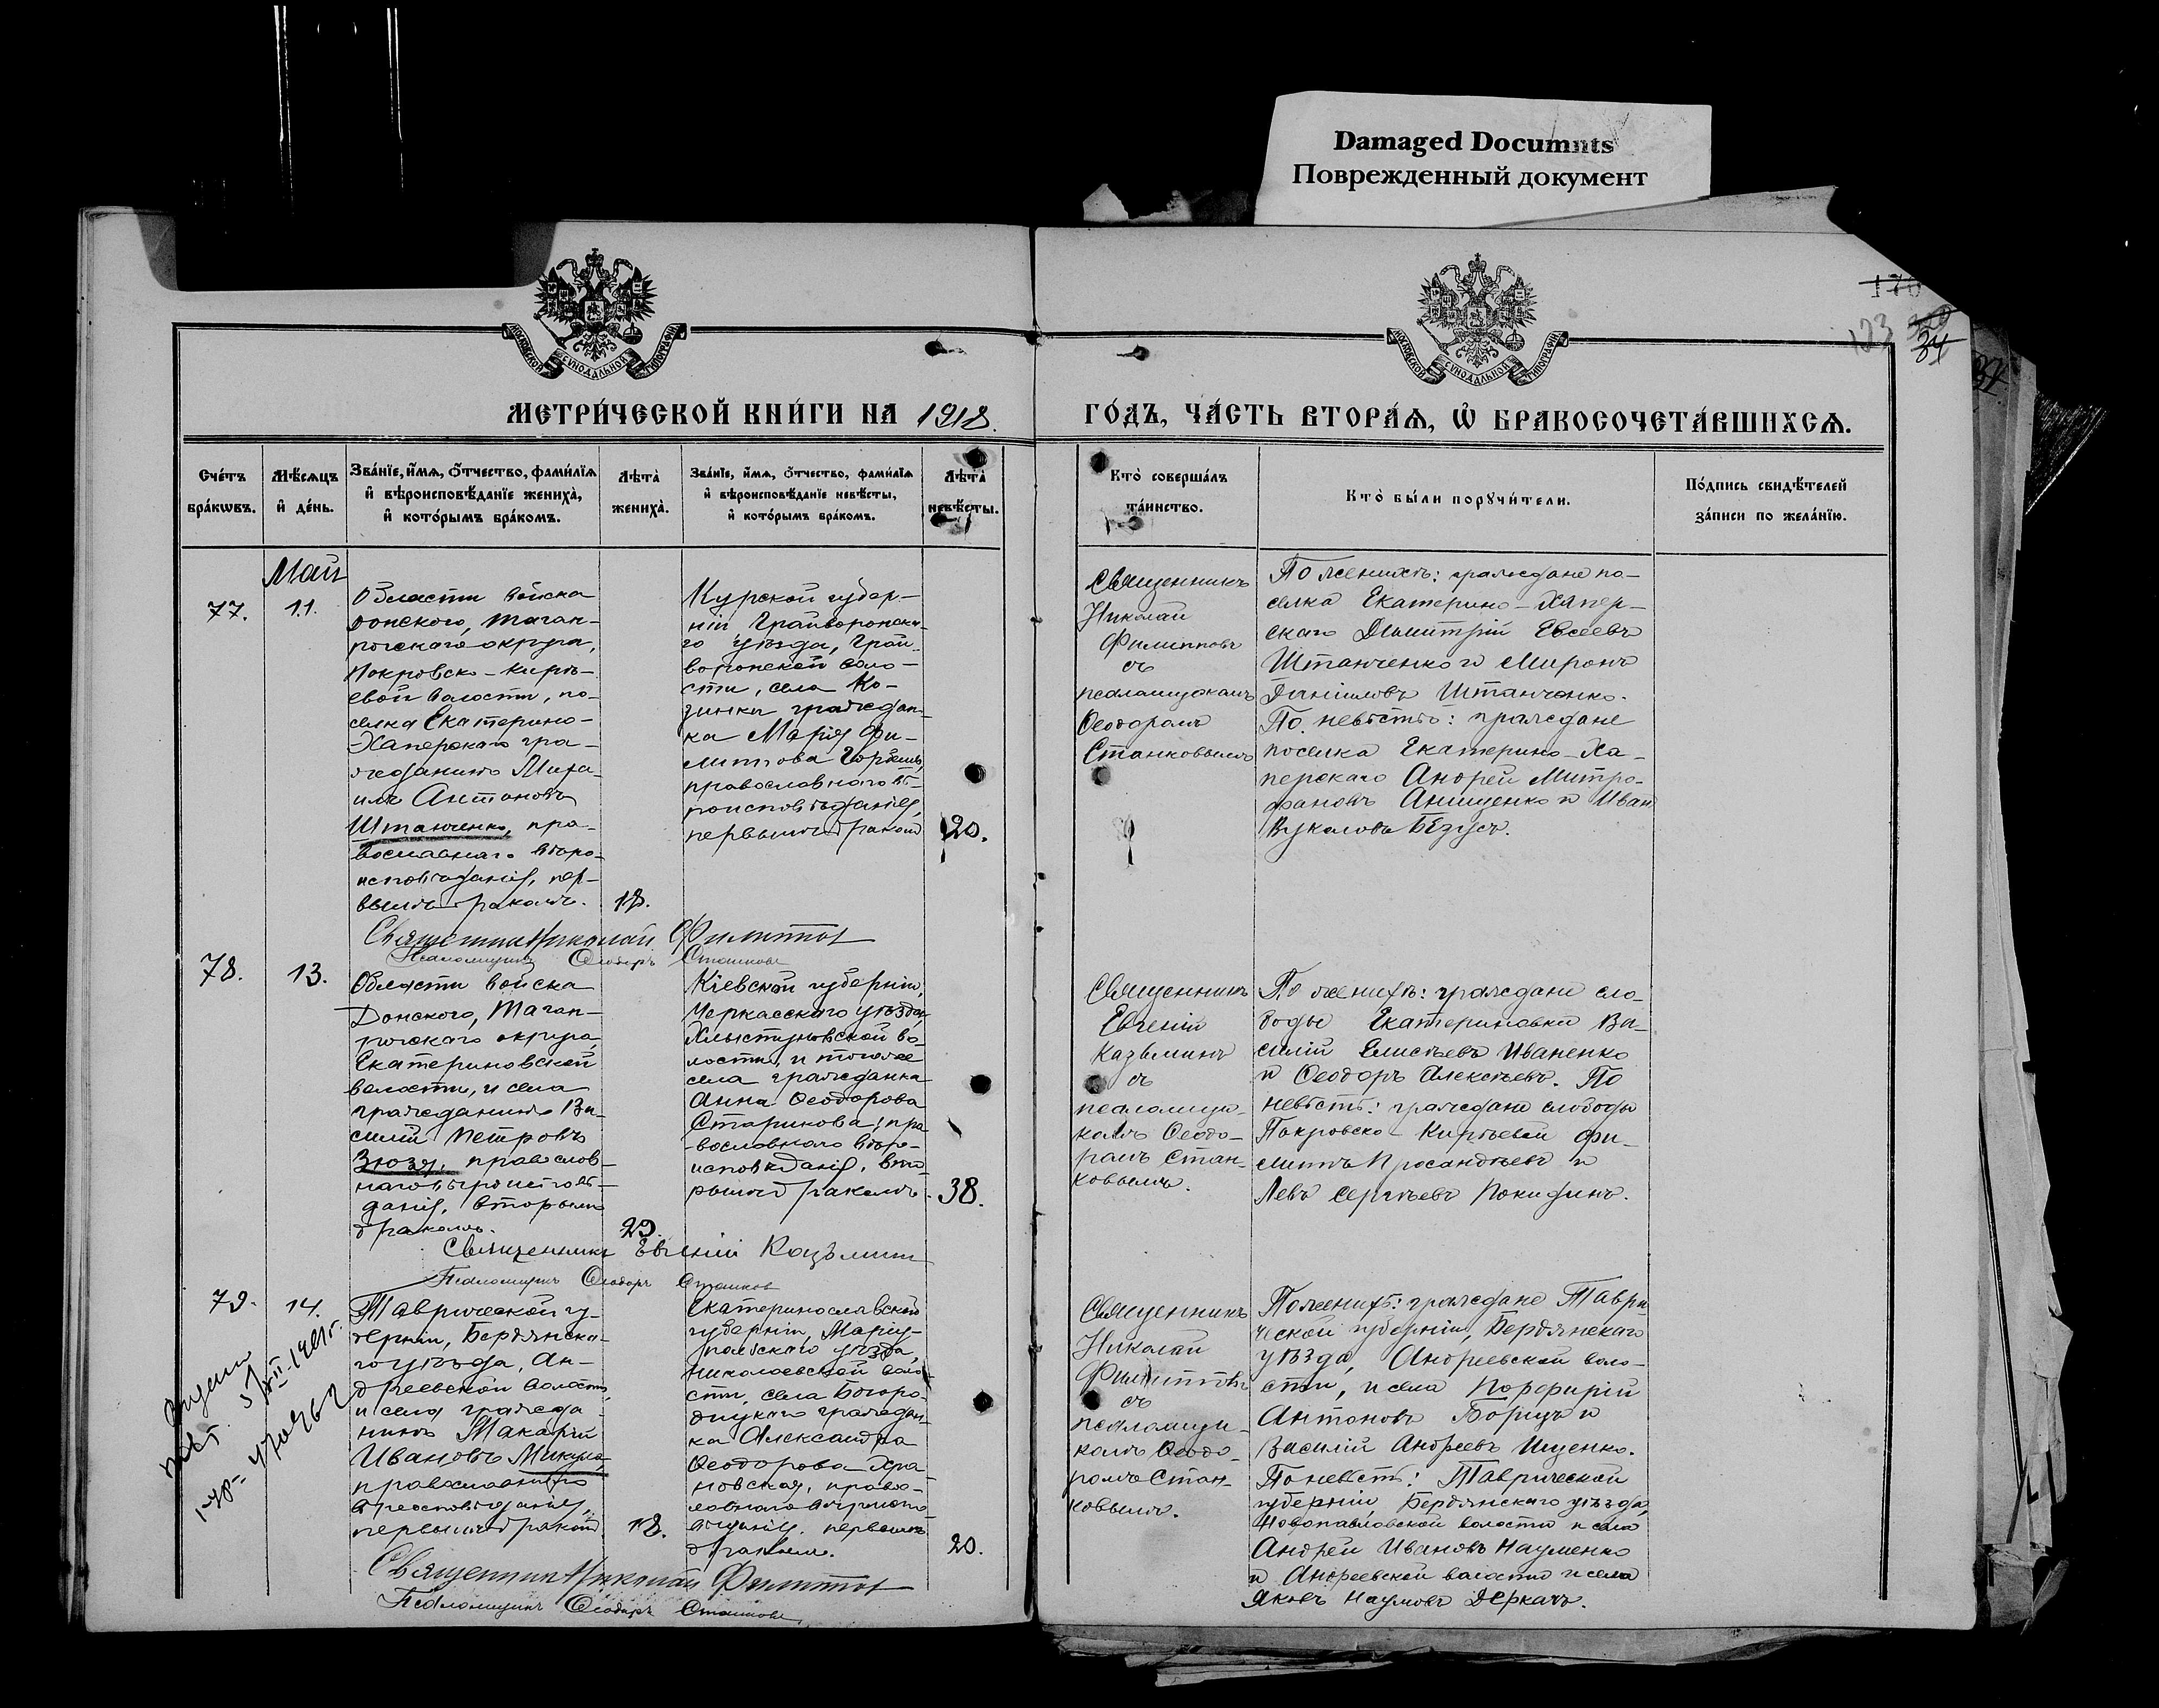 Damaged Documnts
Поврежденный документ
МОСКОВСКОЙ СУНОДАЛЬНОЙ ТИПОГРАФІИ
МОСКОВСКОЙ СУНОДАЛЬНОЙ ТИПОГРАФІИ
170
123
34
МЕТРИ́ЧЕСКОЙ КНИ́ГИ НА 1918.
ГО́ДЪ, ЧА́СТЬ ВТОРА́Ѧ, Ѡ҆ БРАКОСОЧЕТА́ВШИХСѦ.
Сче́тъ
бра́кѡвъ.
Мѣ́сѧцъ
и҆ де́нь.
Зва́нїе, и҆́мѧ, ѻ҆́тчество, фами́лїѧ
и҆ вѣроисповѣ́данїе жениха̀,
и҆ кото́рымъ бра́комъ.
Лѣ́та̀
жениха̀.
Зва́нїе, и҆́мѧ, ѻ҆́тчество, фами́лїѧ
и҆ вѣроисповѣ́данїе невѣ́сты,
и҆ кото́рымъ бра́комъ.
Лѣ́та̀
невѣ́сты.
Кто̀ соверша́лъ
та́инство.
Кто̀ бы́ли порꙋчи́тели.
По́дпись свидѣ́телей
за́писи по жела́нїю.
Май
77.
11.
Области войска
Донского, Таган-
рогскаго округа,
Покровско-Кирѣ-
евой волости, по-
селка Екатерино-
-Хаперскаго гра-
жданинъ Миха-
илъ Антоновъ
Штанченко, пра-
вославнаго вѣро-
исповѣданія, пер-
вымъ бракомъ.
18.
Курской губер-
ніи Грайворонска-
го уѣзда, Грай-
воронской воло-
сти, села Ко-
зинки граждан-
ка Марія Фи-
липпова
православнаго вѣ-
роисповѣданія,
первымъ бракомъ
20.
Священникъ
Николай
Филипповъ
съ
псаломщикомъ
Ѳеодоромъ
Станковымъ
По женихѣ: граждане по-
селка Екатерино-Хапер-
скаго Димитрій Евсеевъ
Штанченко и Миронъ
Даніиловъ Штанченко.
По невѣстѣ: граждане
поселка Екатерино-Ха-
перскаго Андрей Митро-
фановъ Анищенко и Иван
Вуколовъ Безусъ.
Священникъ Николай Филиппов
Псаломщикъ Ѳеодоръ Станковъ
78.
13.
Области войска
Донского, Таган-
рогскаго округа,
Екатериновской
волости, и села
гражданинъ Ва-
силій Петровъ
Зюзя, православ-
наго вѣроисповѣ-
данія, вторымъ
бракомъ.
29.
Кіевской губерніи,
Черкасскаго уѣзда,
Хлыстуновской во-
лости, и тогоже
села гражданка
Анна Ѳеодорова
Старикова, пра
-вославнаго вѣро-
исповѣданія, вто-
рымъ бракомъ.
38.
Священникъ
Евгеній
Казьминъ
съ
псаломщи-
комъ Ѳеодо-
ромъ Стан-
ковымъ.
По женихѣ: граждане сло-
боды Екатериновки Ва-
силій Елисѣевъ Иваненко
и Ѳеодоръ Алексѣевъ. По
невѣстѣ: граждане слободы
Покровско-Кирѣевой Фи-
липпъ и
Левъ Сергѣевъ Покидинъ.
Священникъ Евгеній Козьмин
Псаломщикъ Ѳеодоръ Станков
79.
14.
Таврической гу-
берніи, Бердянска-
го уѣзда, Ан-
дреевской волости,
и села гражда-
нинъ Макарій
Ивановъ Микула,
православнаго
вѣроисповѣданія,
первымъ бракомъ.
18.
Екатеринославской
губерніи, Маріу-
польскаго уѣзда,
Николаевской воло
сти, села Богоро-
дицкаго граждан-
ка Александра
Ѳеодорова Хра-
новская, право-
славнаго вѣроиспо-
вѣданія, первымъ
бракомъ.
20.
Священникъ
Николай
Филипповъ
съ
псаломщи-
комъ Ѳеодо-
ромъ Стан-
ковымъ.
По женихѣ: граждане Таври-
ческой губерніи, Бердянскаго
уѣзда, Андреевской воло-
сти, и села Порфирій
Антоновъ Борщъ и
Василій Андреевъ Ищенко.
По невѣстѣ: Таврической
губерніи, Бердянскаго уѣзда,
Новопавловской волости и села
Андрей Ивановъ Науменко
и Андреевской волости и села
Яковъ Наумовъ Деркачъ.
Священникъ Николай Филиппов
Псаломщикъ Ѳеодоръ Станковъ